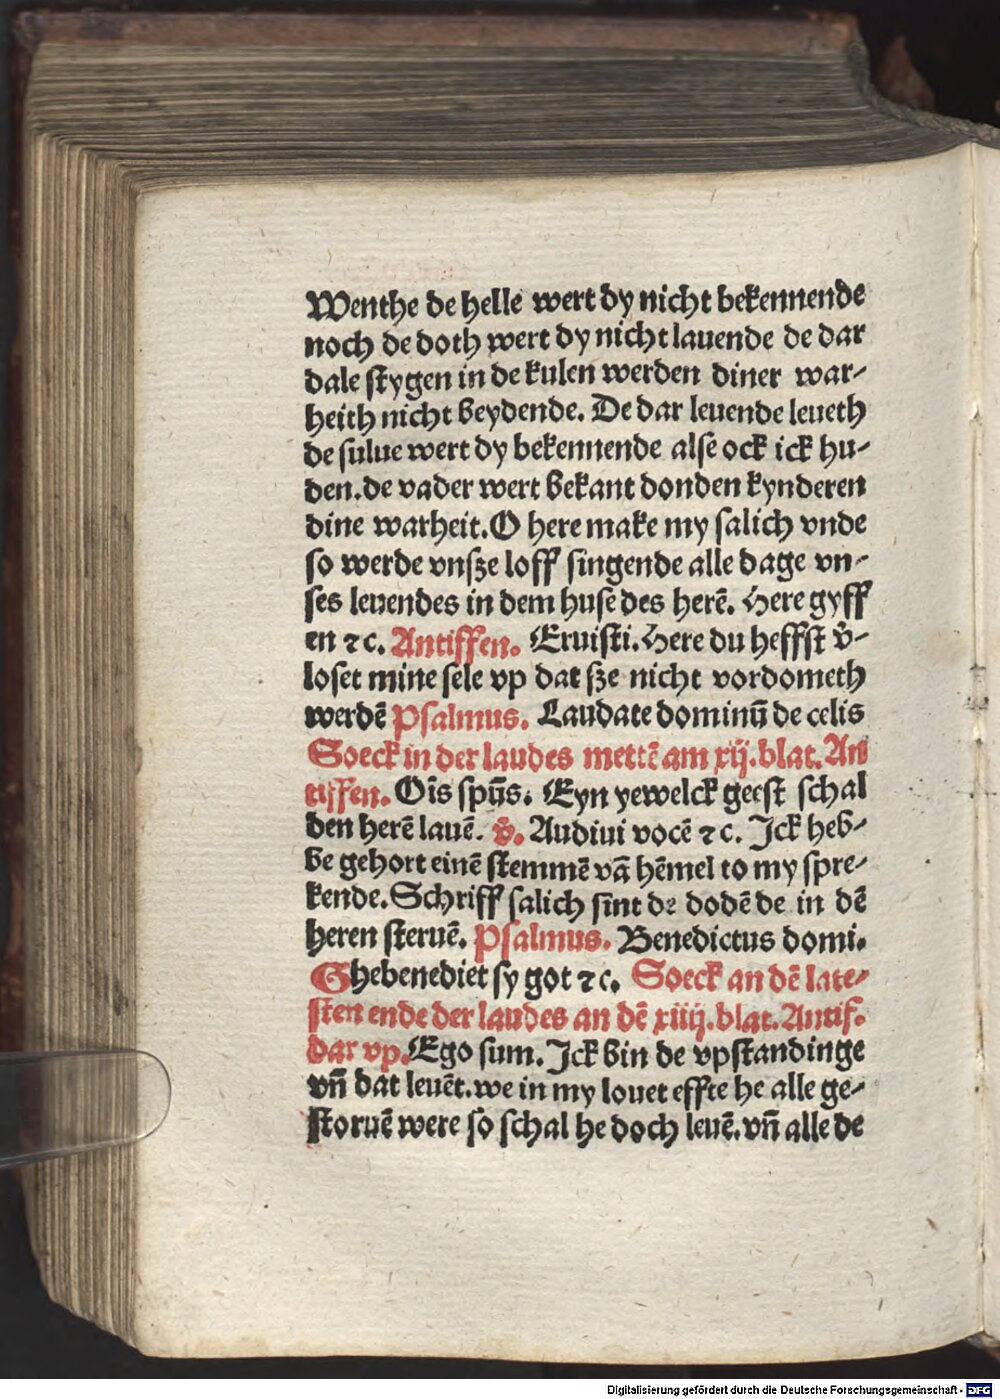 Wenthe de helle wert dy nicht bekennende
noch de doth wert dy nicht lauende de dar
dale stygen in de kulen werden diner war-
heith nicht beydende. De dar leuende leueth
de sulue wert dy bekennende alse ock ick hu-
den. de vader wert bekant donden kynderen
dine warheit. O here make my salich vnde
so werde vnsze loff singende alle dage vn-
ses leuendes in dem huse des herē. Here gyff
en ⁊c. Antiffen. Eruisti. Here du heffst v̄-
loset mine sele vp dat sze nicht vordometh
werdē Psalmus. Laudate dominū de celis
Soeck in der laudes mettē am xij. blat. An
tiffen. Oīs spūs. Eyn yewelck geest schal
den herē lauē. v̄. Audiui vocē ⁊c. Jck heb-
be gehort einē stemmē vā hēmel to my spre-
kende. Schriff salich sint de dodē de in dē
heren steruē. Psalmus. Benedictus domi.
Ghebenediet sy got ⁊c. Soeck an dē late-
sten ende der laudes an dē xiiij. blat. Antif.
dar vp. Ego sum. Jck bin de vpstandinge
vn̄ dat leuēt. we in my louet effte he alle ge-
storuē were so schal he doch leuē. vn̄ alle de
Digitalisierung gefördert durch die Deutsche Forschungsgemeinschaft - DFG